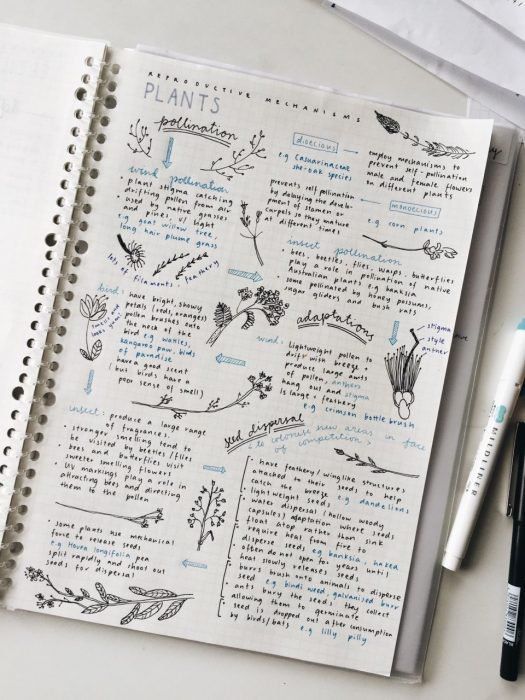 REPRODUCTIVE MECHANISMS
PLANTS
pollination
dioecious
e.g Casuarinaceae
she-oak species
employ mechanisms to
prevent self-pollination
male and female flowers
on different plants
wind pollination
plant stigma catching
drifting pollen from air
• used by native grasses
and pines, w/ light
e.g. goat willow tree,
long hair plume grass
lots of filaments - feathery
prevents self pollination
by delaying the develo-
pment of stamen or
carpels so they mature
at different times
monoecious
e.g corn plants
insect pollination
• bees, beetles, flies, wasps, butterflies
play a role in pollination of native
Australian plants e.g banksia
• some pollinated by honey possums,
sugar gliders and bush rats
bird:
• have bright, showy
petals (reds, oranges)
pollen brushes onto
the neck of the
bird e.g wattles,
kangaroo paw, birds
of paradise
• have a good scent
(but birds have a
poor sense of smell)
adaptations
wind:
• lightweight pollen to
drift w/ breeze
• produce large amts
of pollen, anthers
hang out and stigma
is large & feathery
e.g crimson bottle brush
stigma
style
anther
insect:
• produce a large range
of fragrances.
• stronger smelling tend to
be visited by beetles/flies
• bees and butterflies visit
sweeter smelling flowers
• UV markings play a role in
attracting bees and directing
them to the pollen
seed dispersal
(to colonise new areas in face
of competition)
• have feathery/winglike structures
attached to their seeds to help
catch the breeze e.g dandelions
• light weight seeds
• water dispersal (hollow woody
capsules) adaptation where seeds
float atop rather than sink
• require heat from fire to
disperse seeds e.g banksia, naked
• often do not open for years until
heat slowly releases seeds
• burrs brush onto animals to disperse
seed e.g bindi weed, galvanised burr
• ants bury the seeds they collect
allowing them to germinate
• seed is dropped out after consumption
by birds/bats e.g lilly pilly
• some plants use mechanical
force to release seeds
e.g Hovea longifolia pea
split rapidly and shoot out
seeds for dispersal
MILDLINER